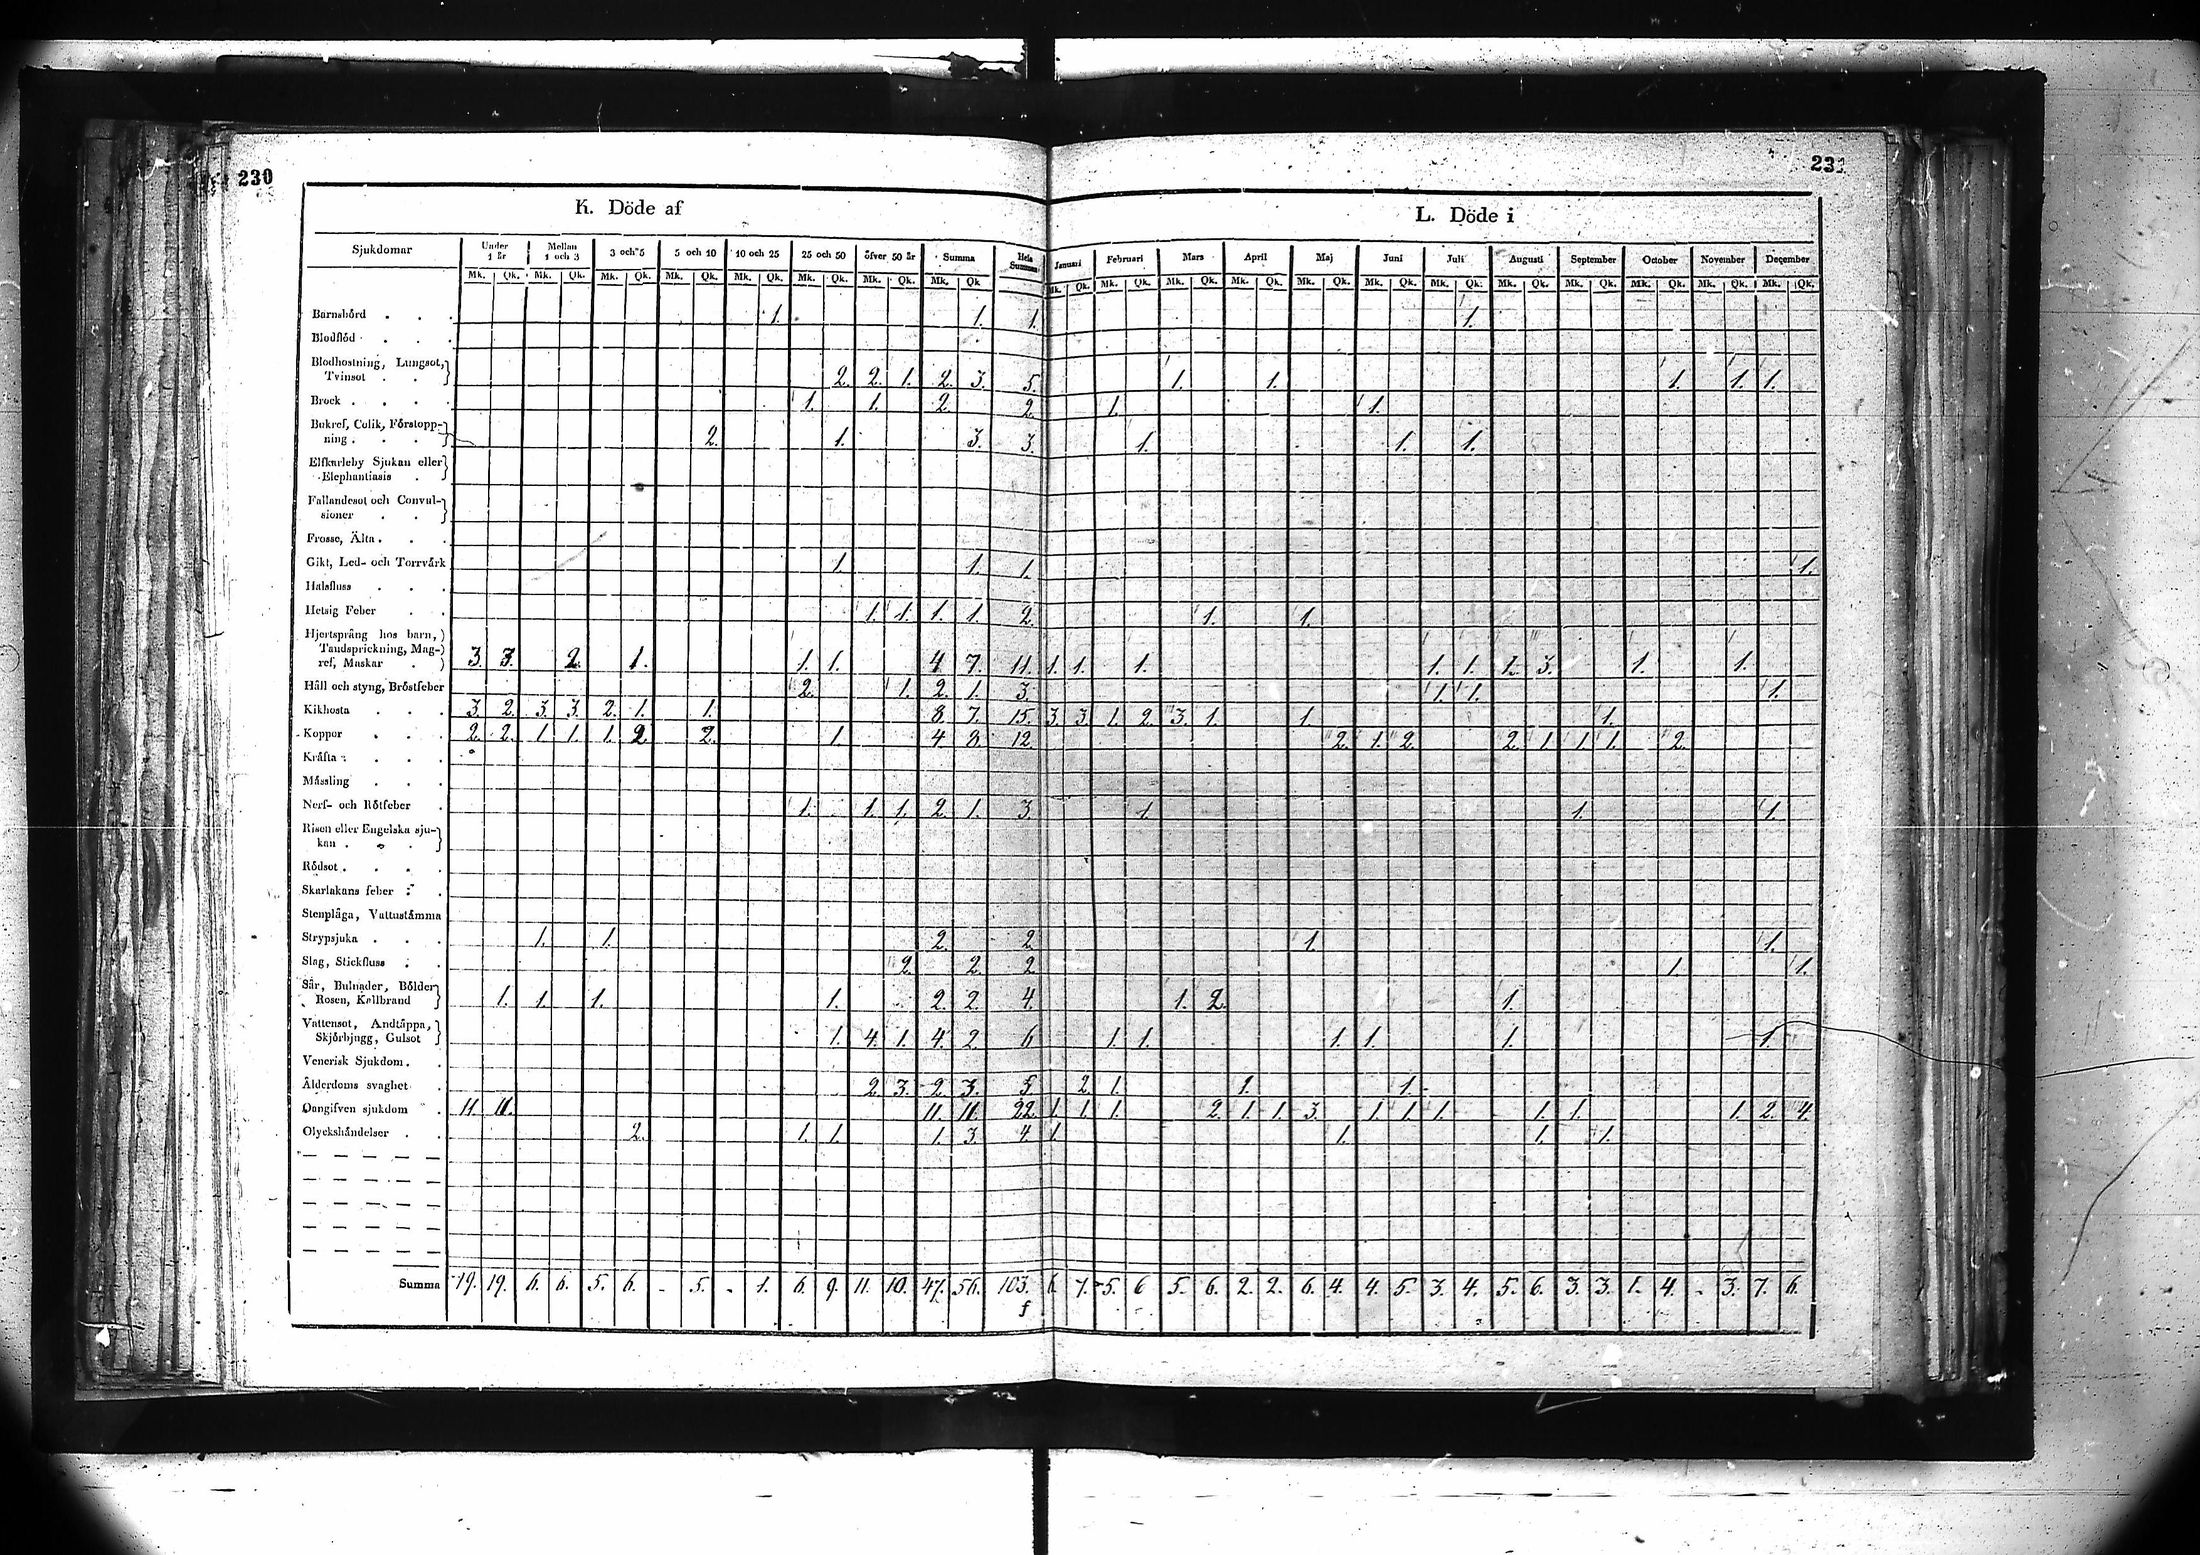 230
231
K. Döde af
L. Döde i
Sjukdomar Under 1 år Mellan 1 och 3 3 och 5 5 och 10 10 och 25 25 och 50 öfver 50 år Summa Hela Summan Januari Februari Mars April Maj Juni Juli Augusti September October November December
Mk. Qk. Mk. Qk. Mk. Qk. Mk. Qk. Mk. Qk. Mk. Qk. Mk. Qk. Mk. Qk Mk. Qk. Mk. Qk. Mk. Qk. Mk. Qk. Mk. Qk. Mk. Qk. Mk. Qk. Mk. Qk. Mk. Qk. Mk. Qk. Mk. Qk. Mk. Qk.
Barnsbörd 1. 1. 1. 1.
Blodflöd
Blodhostning, Lungsot,
Tvinsot 2. 2. 1. 2. 3. 5. 1. 1. 1. 1. 1.
Brock 1. 1. 2. 2. 1. 1.
Bukref, Colik, Förstopp-
ning 2. 1. 3. 3. 1. 1. 1.
Elfkarleby Sjukan eller
Elephantiasis
Fallandesot och Convul-
sioner
Frosse, Älta
Gikt, Led- och Torrvärk 1. 1. 1. 1.
Halsfluss
Hetsig Feber 1. 1. 1. 1. 2. 1. 1.
Hjertsprång hos barn,
Tandsprickning, Mag-
ref, Maskar 3. 3. 2. 1. 1. 1. 4 7. 11. 1. 1. 1. 1. 1. 1. 3. 1. 1.
Håll och styng, Bröstfeber 2. 1. 2. 1. 3. 1. 1. 1.
Kikhosta 3. 2. 3. 3. 2. 1. 1. 8. 7. 15. 3. 3. 1. 2. 3. 1. 1. 1.
Koppor 2. 2. 1. 1. 1. 2. 2. 1. 4. 8. 12. 2. 1. 2. 2. 1. 1. 1. 2.
Kräfta
Mässling
Nerf- och Rötfeber 1. 1. 1. 2. 1. 3 1. 1. 1.
Risen eller Engelska sju-
kan
Rödsot
Skarlakans feber
Stenplåga, Vattustämma
Strypsjuka 1. 1. 2. 2. 1. 1.
Slag, Stickfluss 2. 2. 2. 1. 1.
Sår, Bulnader, Bölder
Rosen, Kallbrand 1. 1. 1. 1. 2. 2. 4. 1. 2. 1.
Vattensot, Andtäppa,
Skjörbjugg, Gulsot 1. 4. 1. 4. 2. 6 1. 1. 1. 1. 1. 1.
Venerisk Sjukdom
Ålderdoms svaghet 2. 3. 2. 3. 5 2. 1. 1. 1.
Oangifven sjukdom 11. 11. 11. 11. 22. 1. 1. 1. 2. 1. 1. 3. 1. 1. 1. 1. 1. 1. 2. 4.
Olyckshändelser 2. 1. 1. 1. 3. 4. 1. 1. 1. 1.
Summa 19. 19. 6. 6. 5. 6. - 5. - 1. 6. 9. 11. 10. 47. 56. 103. 6. 7. 5. 6 5. 6. 2. 2. 6. 4. 4. 5. 3. 4. 5. 6. 3. 3. 1. 4. - 3. 7. 6.
f